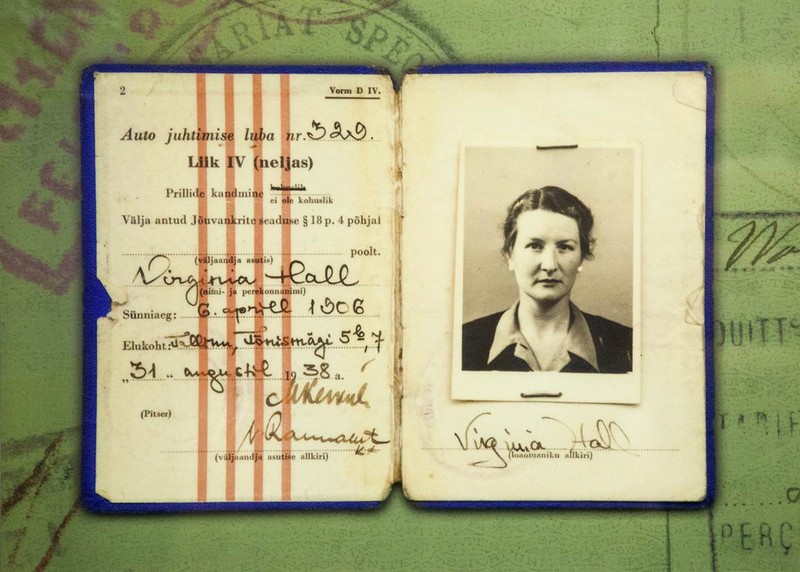 ARIAT SPEC
2
Vorm D IV.
Auto juhtimise luba nr. 329.
Liik IV (neljas)
Prillide kandmine kohuslik
ei ole kohuslik
Välja antud Jõuvankrite seaduse § 18 p. 4 põhjal
poolt.
(väljaandja asutis)
Virginia Hall
(nimi- ja perekonnanimi)
Sünniaeg: 6. aprill 1906
Elukoht: Tallinn, Tõnismägi 5b, 7
„31” augustil 1938 a.
(Pitser)
(väljaandja asutise allkiri)
Virginia Hall
(loaomaniku allkiri)
QUITT
PERÇ